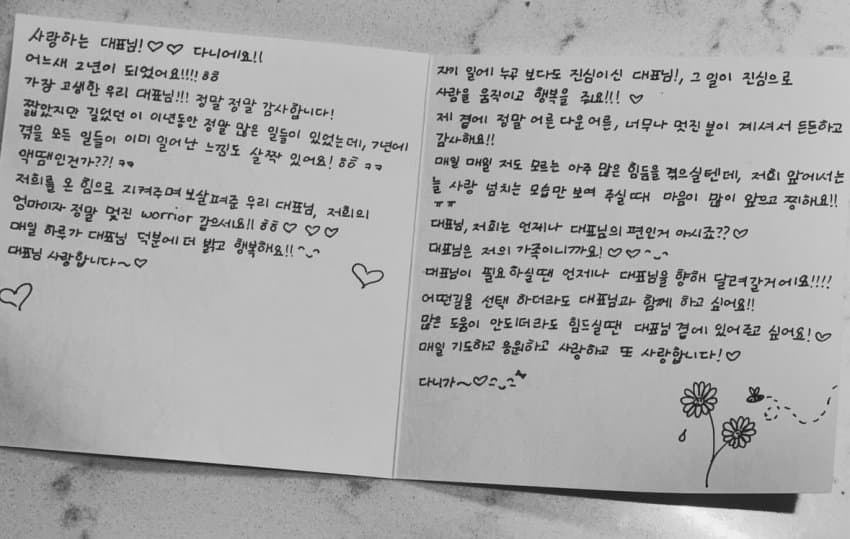 사랑하는 대표님!♡♡ 다니에요!!
어느새 2년이 되었어요!!!! ㅎㅎ
가장 고생한 우리 대표님!!! 정말 정말 감사합니다!
짧았지만 길었던 이 이년동안 정말 많은 일들이 있었는데, 7년에
겪을 모든 일들이 이미 일어난 느낌도 살짝 있어요! ㅎㅎ ㅋㅋ
액땜인건가??! ㅋㅋ
저희를 온 힘으로 지켜주며 보살펴준 우리 대표님, 저희의
엄마이자 정말 멋진 worrior 같으세요!! ㅎㅎ ♡ ♡ ♡
매일 하루가 대표님 덕분에 더 밝고 행복해요!! ^ᴗ^
대표님 사랑합니다~♡
자기 일에 누구 보다도 진심이신 대표님!, 그 일이 진심으로
사람을 움직이고 행복을 줘요!!! ♡
제 곁에 정말 어른 다운 어른, 너무나 멋진 분이 계셔서 든든하고
감사해요!!
매일 매일 저도 모르는 아주 많은 힘듦을 겪으실텐데, 저희 앞에서는
늘 사랑 넘치는 모습만 보여 주실때 마음이 많이 아프고 찡해요!!
ㅠㅠ
대표님, 저희는 언제나 대표님의 편인거 아시죠??♡
대표님은 저의 가족이니까요!♡♡^ᴗ^
대표님이 필요하실땐 언제나 대표님을 향해 달려갈거에요!!!!
어떤길을 선택 하더라도 대표님과 함께 하고 싶어요!!
많은 도움이 안되더라도 힘드실땐 대표님 곁에 있어주고 싶어요!♡
매일 기도하고 응원하고 사랑하고 또 사랑합니다!♡
다니가~♡